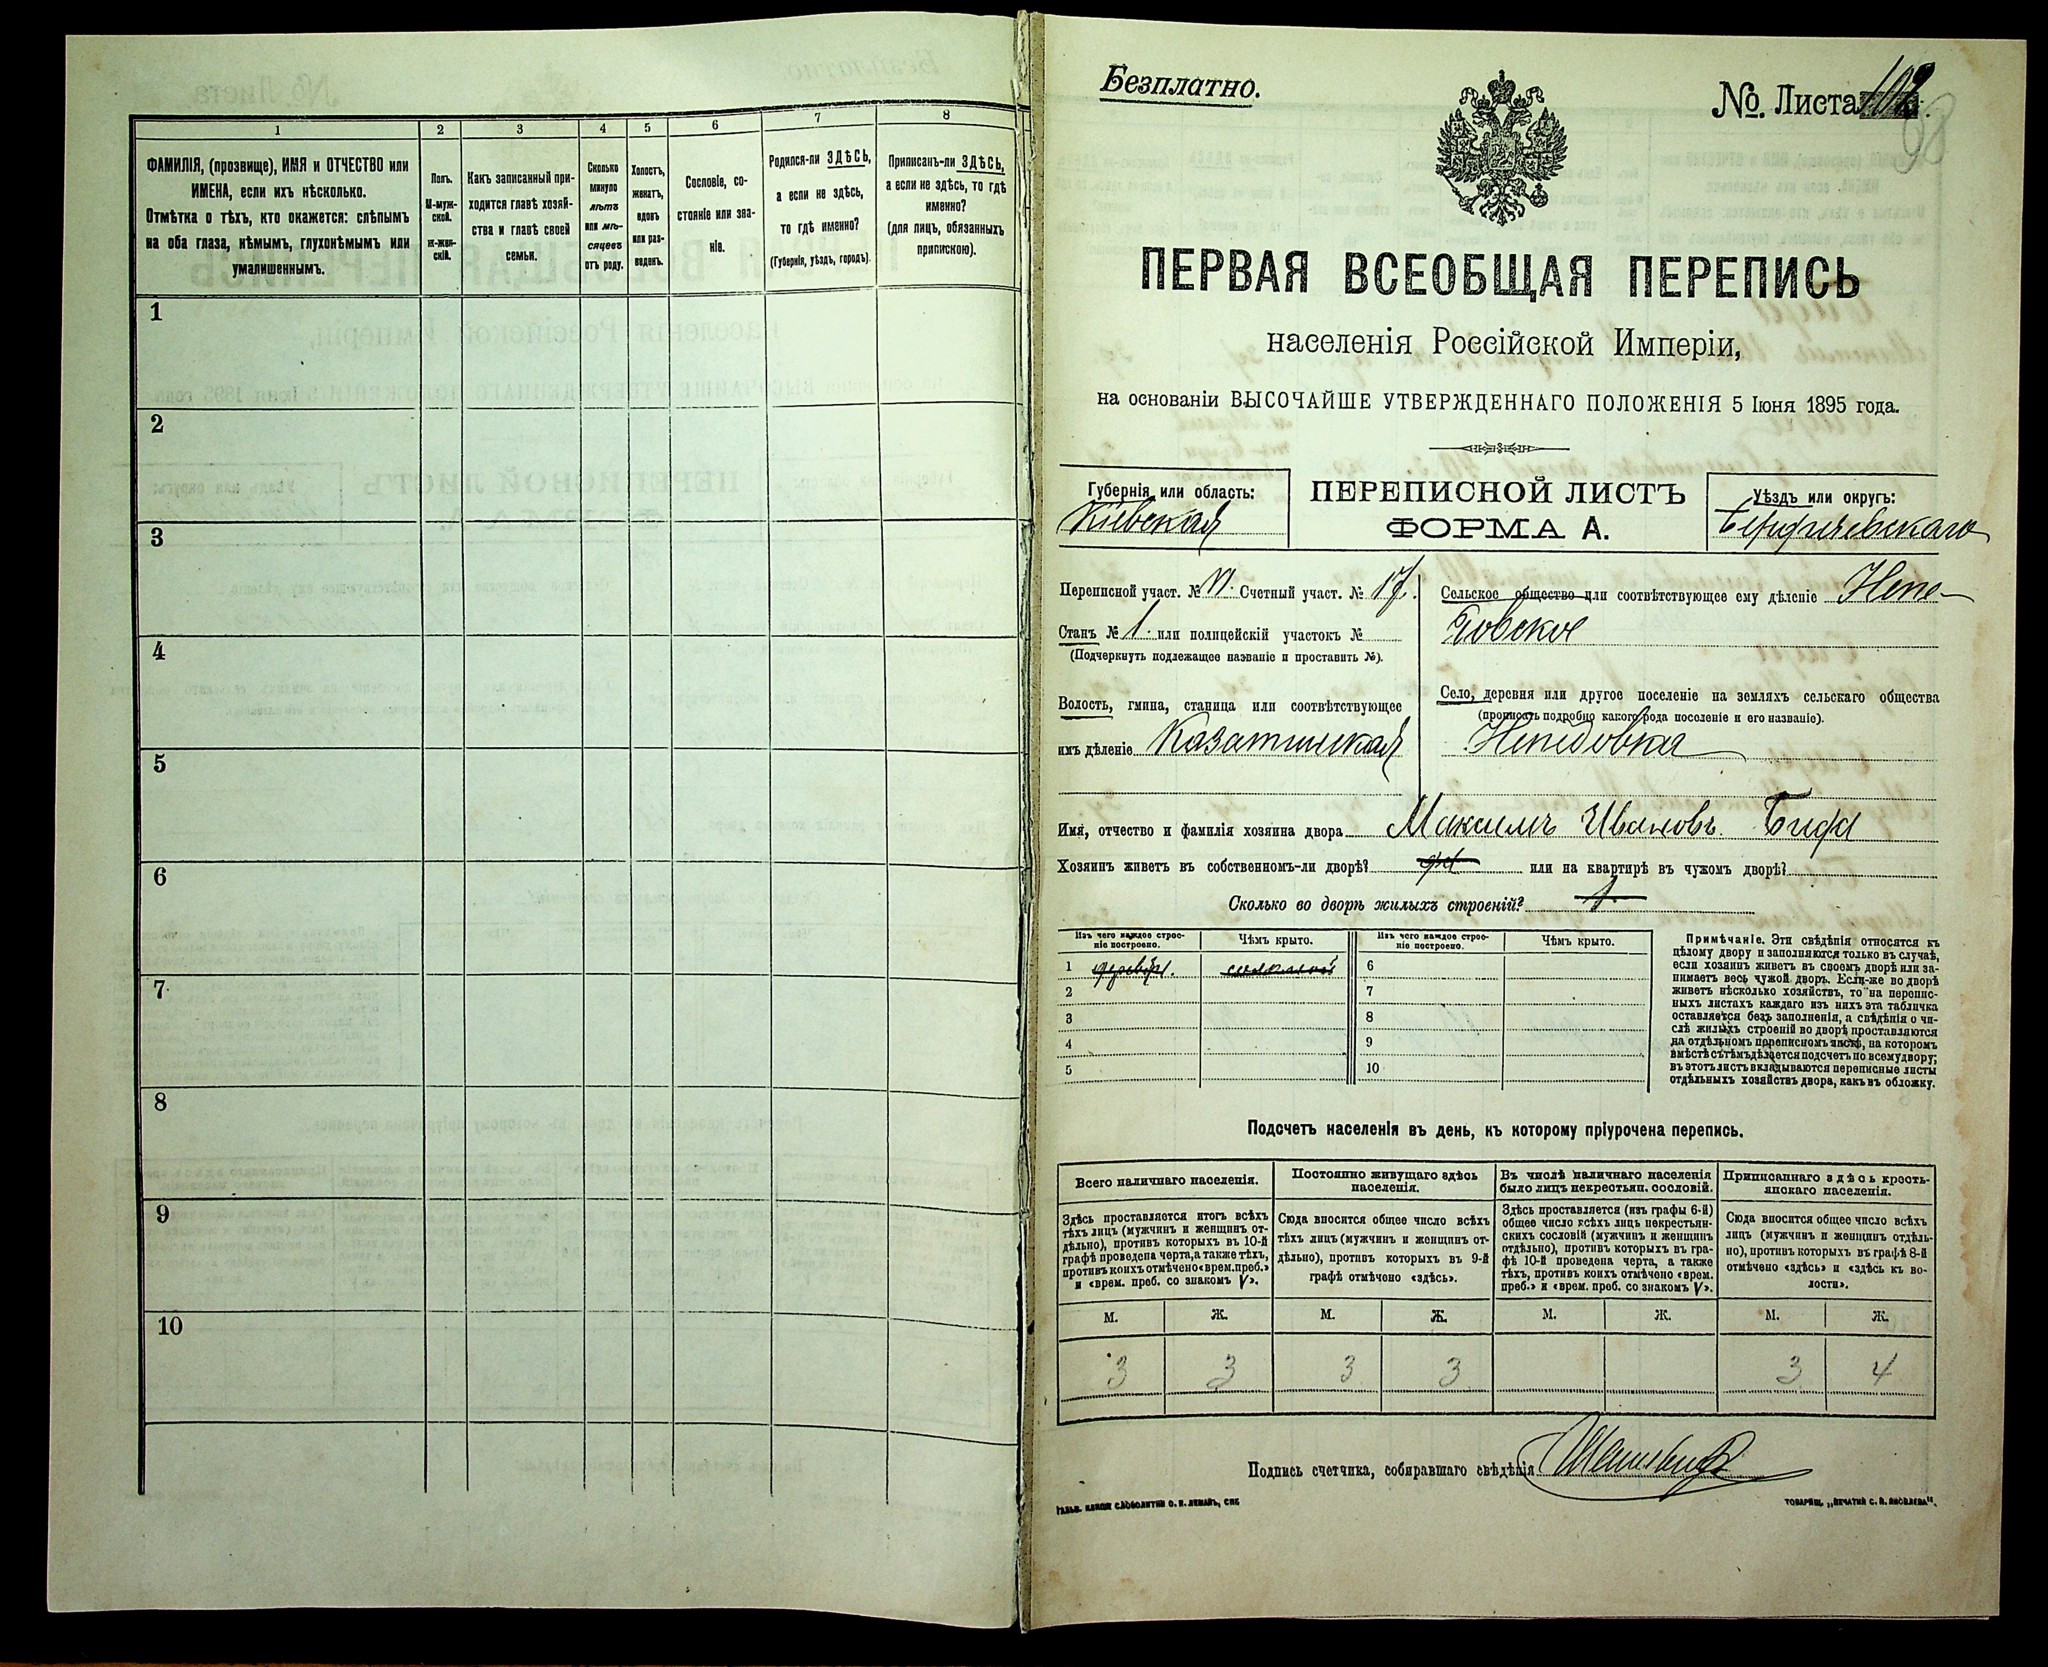 1
2
3
4
5
6
7
8
ФАМИЛІЯ, (прозвище), ИМЯ и ОТЧЕСТВО или
ИМЕНА, если ихъ нѣсколько.
Отмѣтка о тѣхъ, кто окажется: слѣпымъ
на оба глаза, нѣмымъ, глухонѣмымъ или
умалишеннымъ.
Полъ.
М-муж-
ской.
Ж-жен-
скій.
Какъ записанный при-
ходится главѣ хозяй-
ства и главѣ своей
семьи.
Сколько
минуло
лѣтъ
или мѣ-
сяцевъ
отъ роду.
Холостъ,
женатъ,
вдовъ
или раз-
веденъ.
Сословіе, со-
стояніе или зва-
ніе.
Родился-ли ЗДѢСЬ,
а если не здѣсь,
то гдѣ именно?
(Губернія, уѣздъ, городъ).
Приписанъ-ли ЗДѢСЬ,
а если не здѣсь, то гдѣ
именно?
(для лицъ, обязанныхъ
припискою).
1
2
3
4
5
6
7
8
9
10
Безплатно.
№. Листа
98
ПЕРВАЯ ВСЕОБЩАЯ ПЕРЕПИСЬ
населенія Россійской Имперіи,
на основаніи ВЫСОЧАЙШЕ УТВЕРЖДЕННАГО ПОЛОЖЕНІЯ 5 Іюня 1895 года.
Губернія или область:
Кіевская
ПЕРЕПИСНОЙ ЛИСТЪ
ФОРМА А.
Уѣздъ или округъ:
Бердичевскаго
Переписной участ. № VI. Счетный участ. № 17.
Станъ № 1. или полицейскій участокъ №
(Подчеркнуть подлежащее названіе и проставить №).
Волость, гмина, станица или соотвѣтствующее
имъ дѣленіе Казатинская
Сельское общество или соотвѣтствующее ему дѣленіе Непе-
довское
Село, деревня или другое поселеніе на земляхъ сельскаго общества
(прописать подробно какого рода поселеніе и его названіе).
Непедовка
Имя, отчество и фамилія хозяина двора Максимъ Ивановъ Бида
Хозяинъ живетъ въ собственномъ-ли дворѣ? да или на квартирѣ въ чужомъ дворѣ?
Сколько во дворѣ жилыхъ строеній? 1.
Изъ чего каждое строе-
ніе построено.
Чѣмъ крыто.
Изъ чего каждое строе-
ніе построено.
Чѣмъ крыто.
1 дерев. соломой
2
3
4
5
6
7
8
9
10
Примѣчаніе. Эти свѣдѣнія относятся къ
цѣлому двору и заполняются только въ случаѣ,
если хозяинъ живетъ въ своемъ дворѣ или за-
нимаетъ весь чужой дворъ. Если-же во дворѣ
живетъ нѣсколько хозяйствъ, то на перепис-
ныхъ листахъ каждаго изъ нихъ эта табличка
оставляется безъ заполненія, а свѣдѣнія о чи-
слѣ жилыхъ строеній во дворѣ проставляются
на отдѣльномъ переписномъ листѣ, на которомъ
вмѣстѣ съ тѣмъ дѣлается подсчетъ по всему двору;
въ этотъ листъ вкладываются переписные листы
отдѣльныхъ хозяйствъ двора, какъ въ обложку.
Подсчетъ населенія въ день, къ которому пріурочена перепись.
Всего наличнаго населенія.
Постоянно живущаго здѣсь
населенія.
Въ числѣ наличнаго населенія
было лицъ некрестьян. сословій.
Приписаннаго здѣсь кресть-
янскаго населенія.
Здѣсь проставляется итогъ всѣхъ
тѣхъ лицъ (мужчинъ и женщинъ от-
дѣльно), противъ которыхъ въ 10-й
графѣ проведена черта, а также тѣхъ,
противъ коихъ отмѣчено «врем. преб.»
и «врем. преб. со знакомъ V».
Сюда вносится общее число всѣхъ
тѣхъ лицъ (мужчинъ и женщинъ от-
дѣльно), противъ которыхъ въ 9-й
графѣ отмѣчено «здѣсь».
Здѣсь проставляется (изъ графы 6-й)
общее число всѣхъ лицъ некрестьян-
скихъ сословій (мужчинъ и женщинъ
отдѣльно), противъ которыхъ въ гра-
фѣ 10-й проведена черта, а также
тѣхъ, противъ коихъ отмѣчено «врем.
преб.» и «врем. преб. со знакомъ V».
Сюда вносится общее число всѣхъ
лицъ (мужчинъ и женщинъ отдѣль-
но), противъ которыхъ въ графѣ 8-й
отмѣчено «здѣсь» и «здѣсь къ во-
лости».
М. Ж. М. Ж. М. Ж. М. Ж.
3 3 3 3 3 4
Подпись счетчика, собиравшаго свѣдѣнія
ТОВАРИЩ. „ПЕЧАТНИ С. П. ЯКОВЛЕВА“.